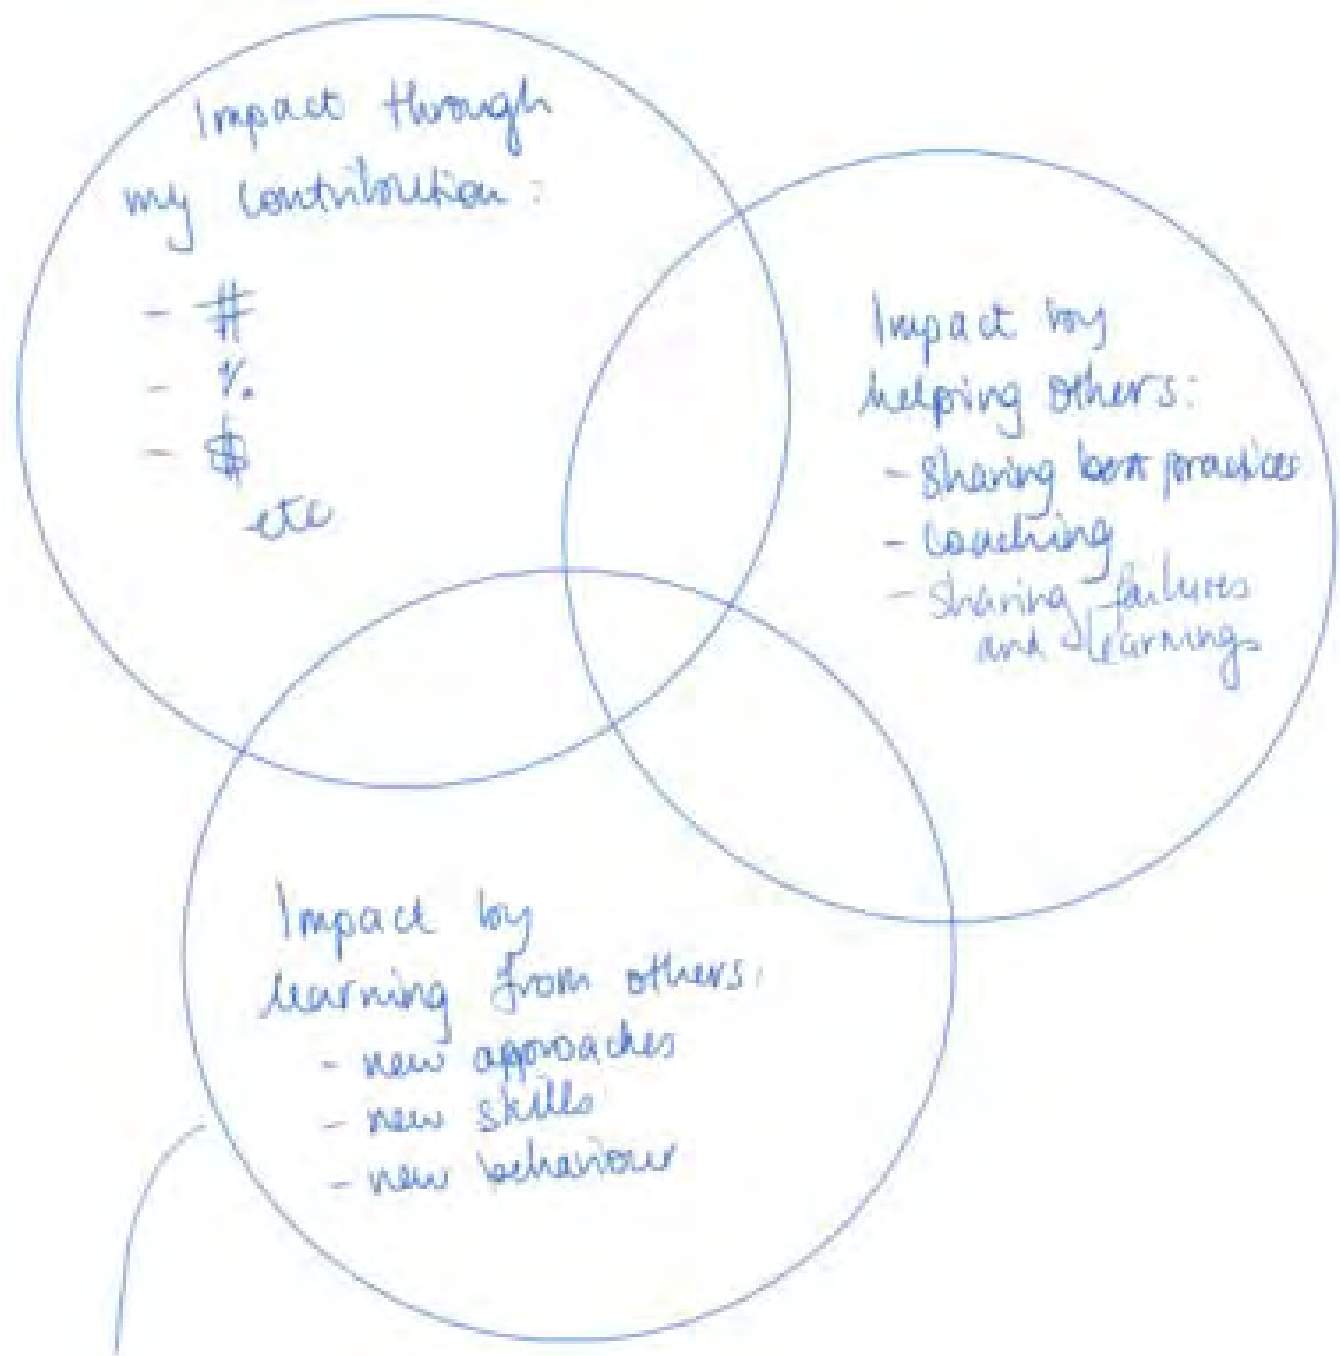 Impact through
my contribution:
- #
- %
- $
etc
Impact by
helping others:
- Sharing best practices
- Coaching
- Sharing failures
and learnings
Impact by
learning from others:
- new approaches
- new skills
- new behaviour